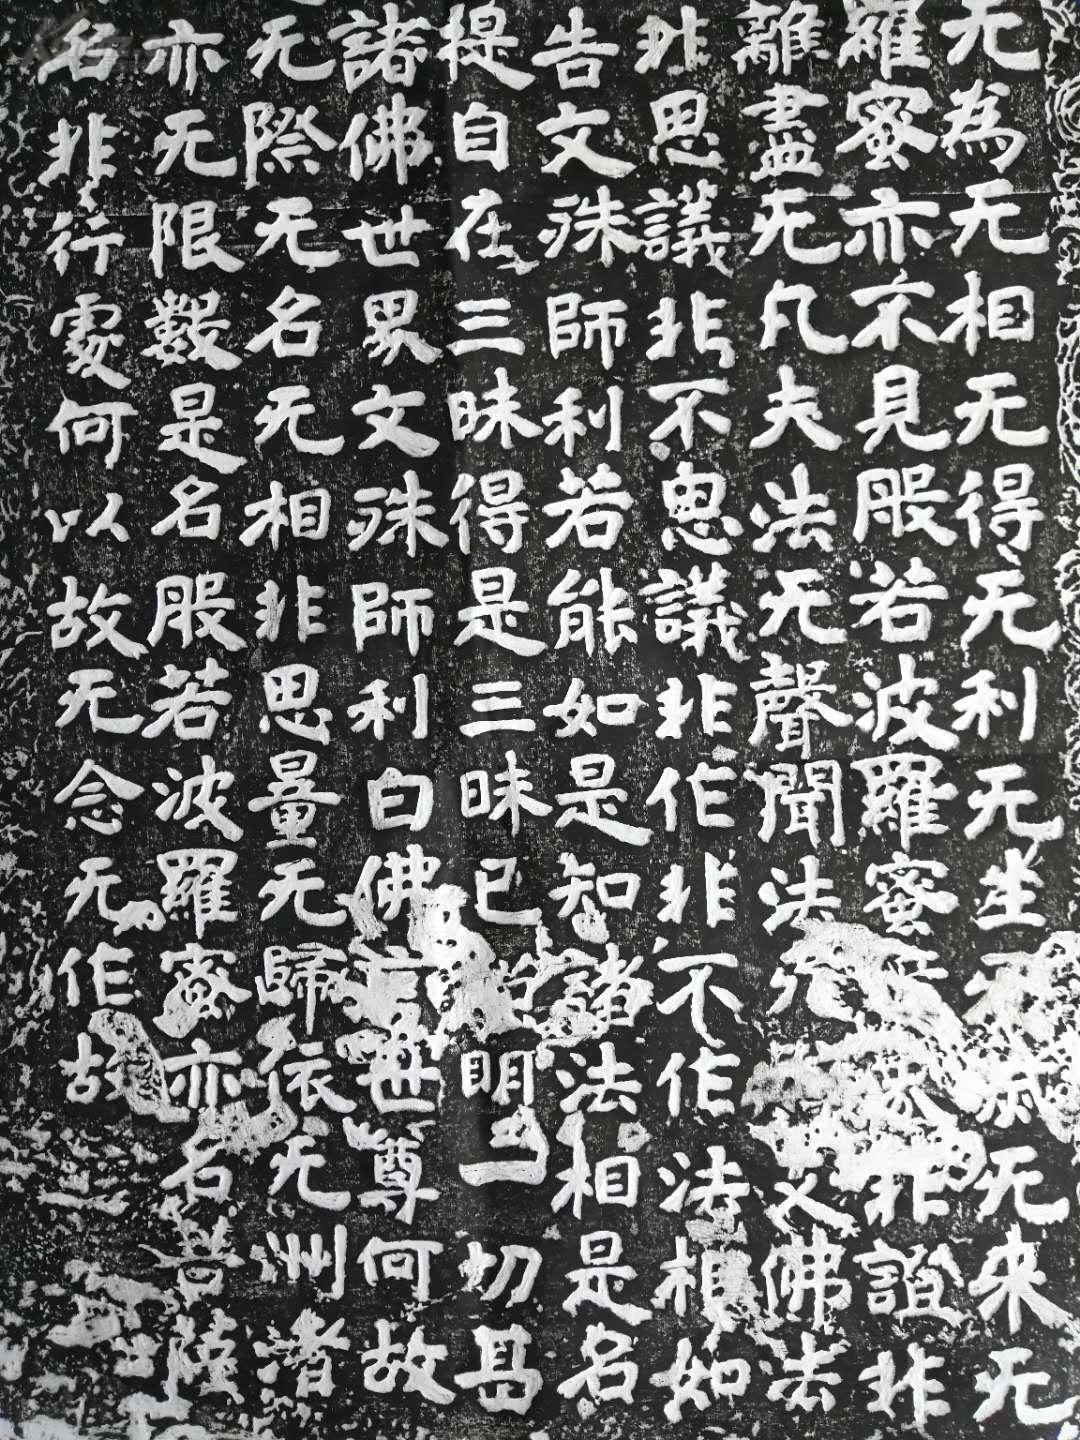 无為无相无得无利无生无滅无來无
羅蜜亦不見般若波羅蜜界非證非
離盡无凡夫法无聲聞法支佛法
非思議非不思議非作非不作法相如
告文殊師利若能如是知諸法相是名
提自在三昧得是三昧已明一切甚
諸佛世界文殊師利白佛言世尊何故
无際无名无相非思量无歸依无洲渚
亦无限數是名般若波羅蜜亦名菩薩
名非行處何以故无念无作故